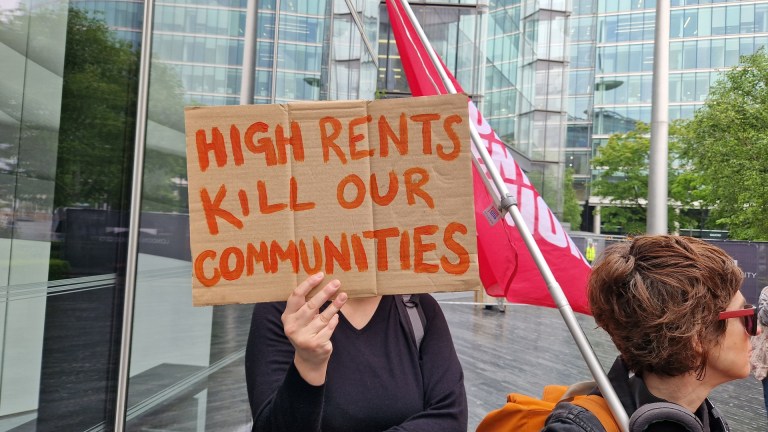 HIGH RENTS
KILL OUR
COMMUNITIES